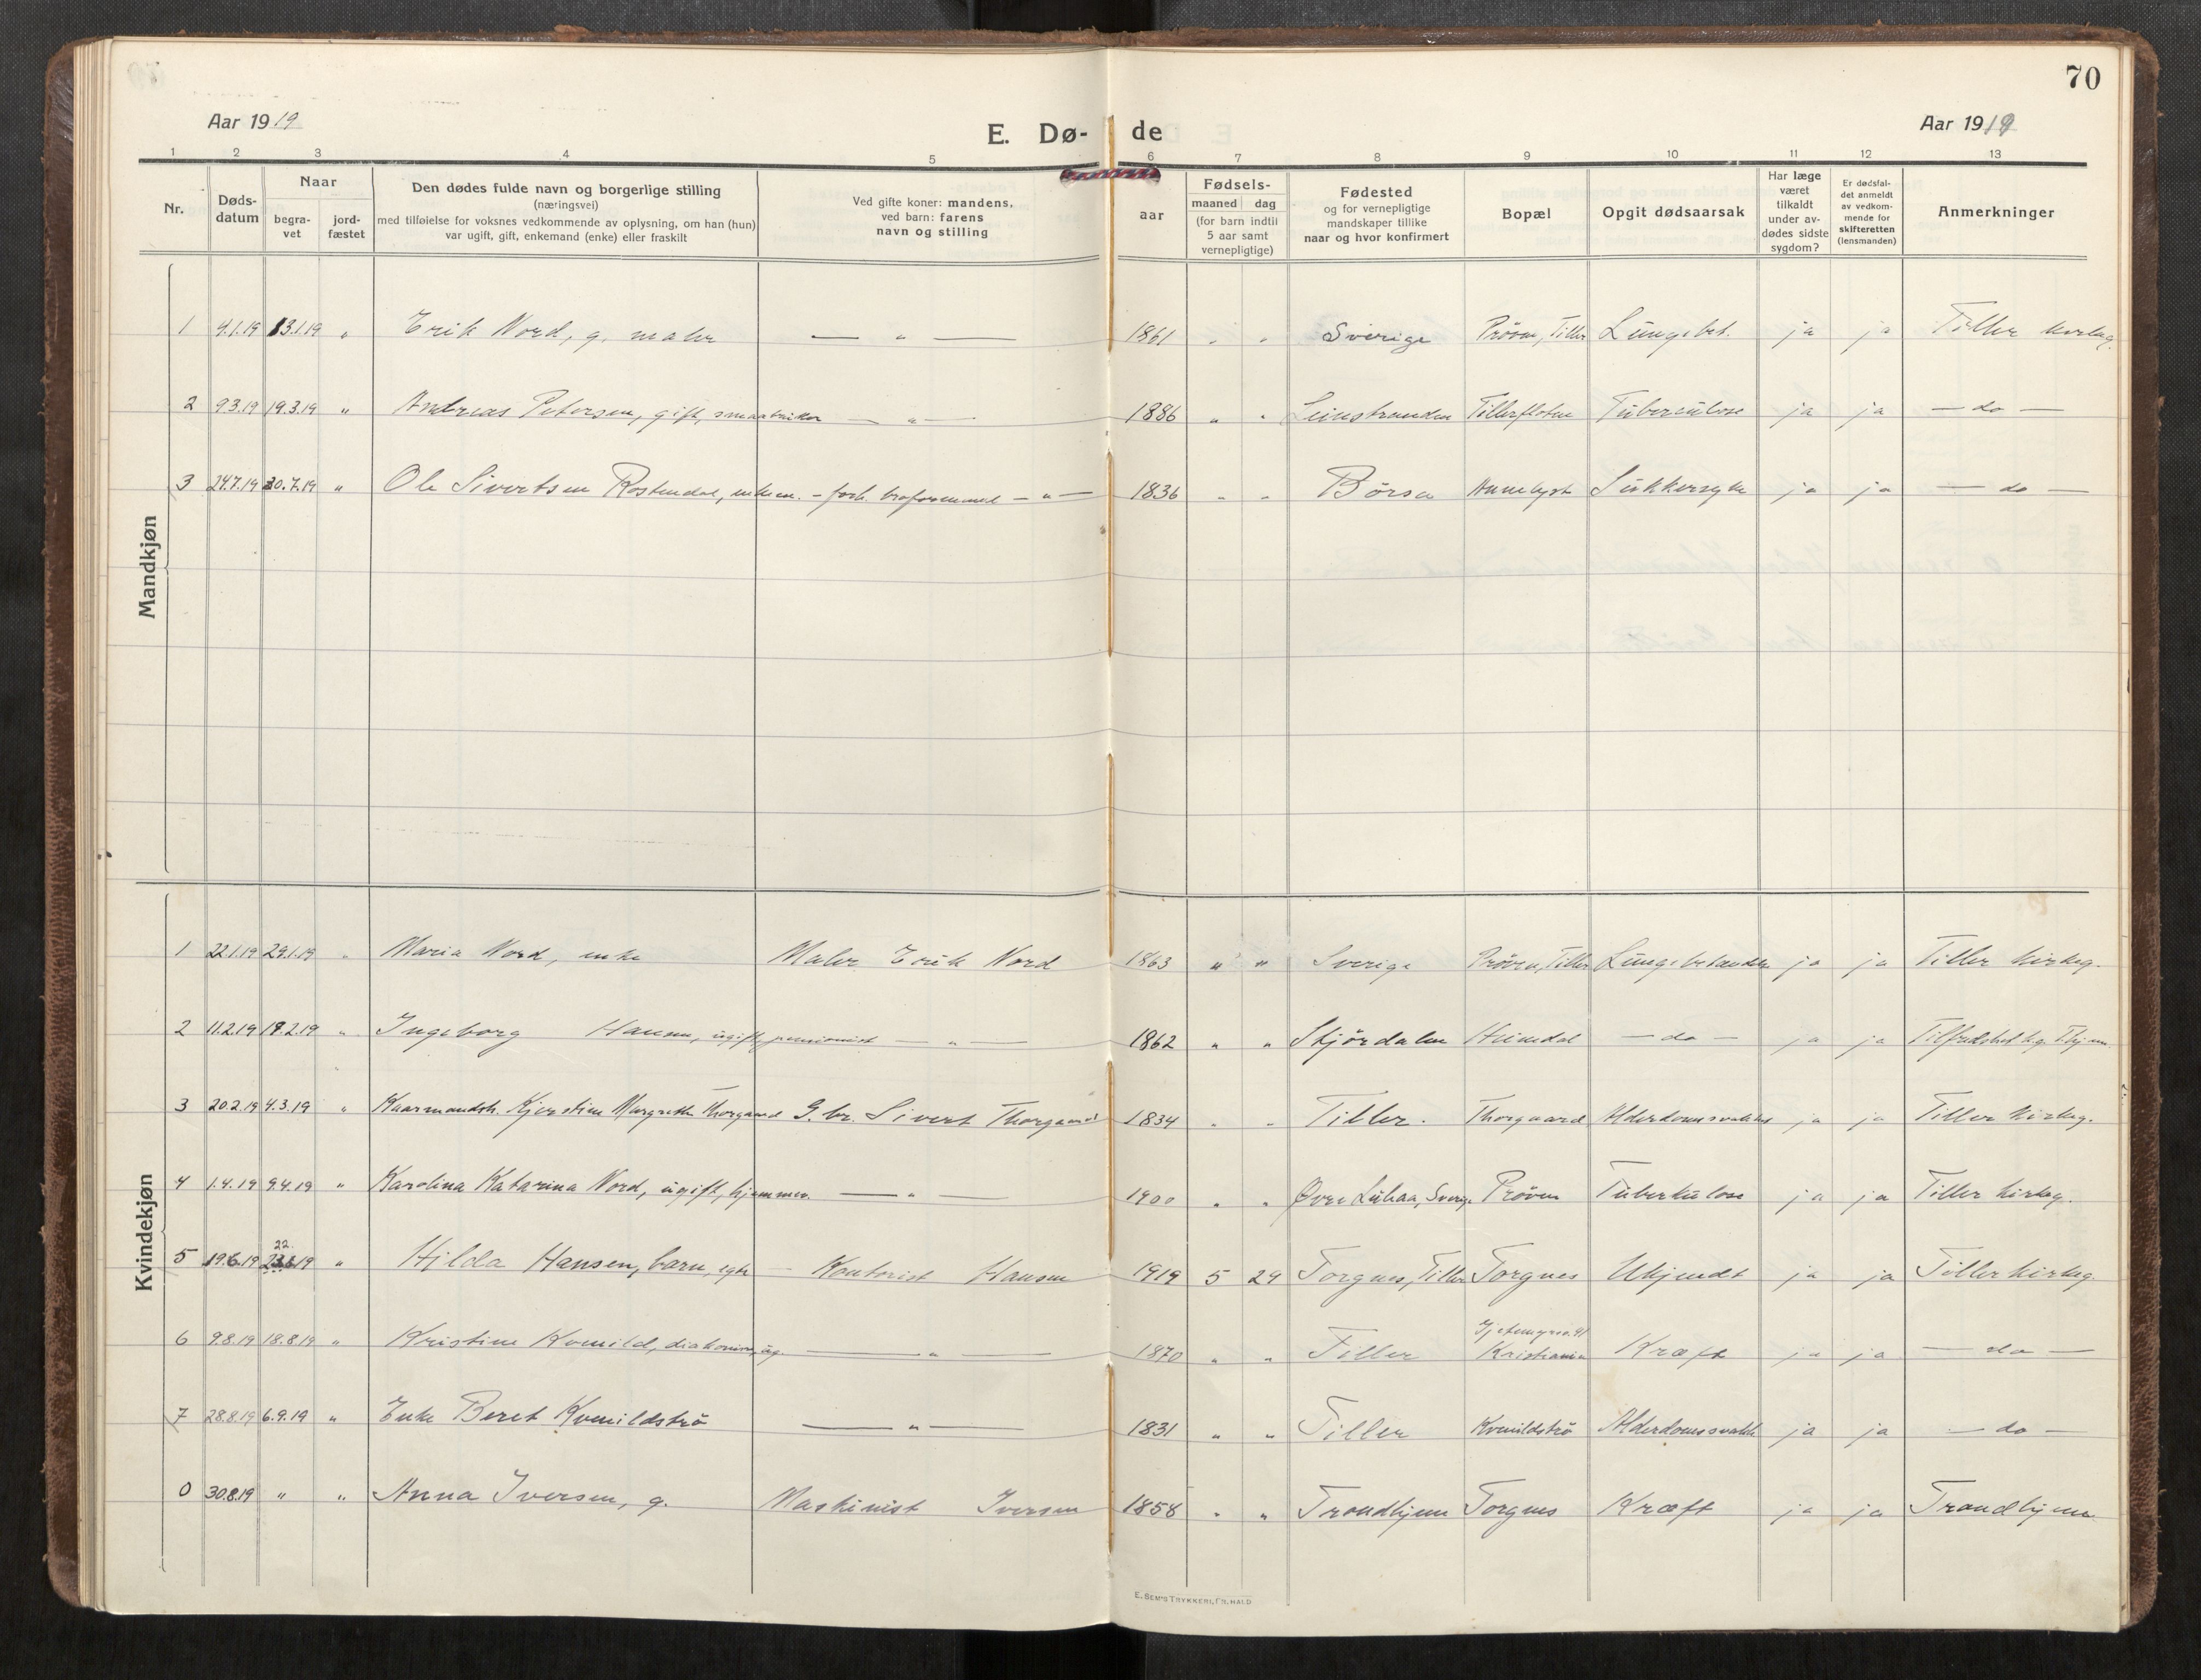 70
Aar 1919
E. Dø- de
Aar 1919
1 2 3 4 5 6 7 8 9 10 11 12 13
Nr.
Døds-
datum
Naar
begra-
vet
jord-
fæstet
Den dødes fulde navn og borgerlige stilling
(næringsvei)
med tilføielse for voksnes vedkommende av oplysning, om han (hun)
var ugift, gift, enkemand (enke) eller fraskilt
Ved gifte koner: mandens,
ved barn: farens
navn og stilling
Fødsels-
aar
maaned dag
(for barn indtil
5 aar samt
vernepligtige)
Fødested
og for vernepligtige
mandskaper tillike
naar og hvor konfirmert
Bopæl
Opgit dødsaarsak
Har læge
været
tilkaldt
under av-
dødes sidste
sygdom?
Er dødsfal-
det anmeldt
av vedkom-
mende for
skifteretten
(lensmanden)
Anmerkninger
Mandkjøn
1 4.1.19 13.1.19 " Erik Nord, g. maler — " — 1861 " " Sverige Prøven, Tiller Lungebet. ja ja Tiller kirkeg.
2 9.3.19 19.3.19 " Andreas Petersen, gift, smaabruker — " — 1886 " " Leinstranden Tillerfloten Tuberculose ja ja — do —
3 24.7.19 30.7.19 " Ole Sivertsen Rostendal, enkem. - forh. broformand — " — 1836 " " Börsa Annelyst Sukkersyke ja ja — do —
Kvindekjøn
1 22.1.19 29.1.19 " Maria Nord, enke Maler Erik Nord 1863 " " Sverige Prøven, Tiller Lungebetændelse ja ja Tiller kirkeg.
2 11.2.19 18.2.19 " Ingeborg Hansen, ugift, pensionist — " — 1862 " " Stjördalen Heimdal — do — ja ja Tilfredshet kg. Thjem.
3 20.2.19 4.3.19 " Kaarmandsk. Kjerstine Margrethe Thorgaard G.br. Sivert Thorgaard 1834 " " Tiller. Thorgaard Alderdomssvakhet ja ja Tiller kirkeg.
4 1.4.19 9.4.19 " Karolina Katarina Nord, ugift, hjemmev. — " — 1900 " " Øvre Luhaa, Sverige Prøven Tuberkulose ja ja Tiller kirkeg.
22.
5 19.6.19 23.6.19 " Hilda Hansen, barn, egte — Kontorist Hansen 1919 5 29 Torgnes, Tiller Torgnes Ukjendt ja ja Tiller kirkeg.
6 9.8.19 18.8.19 " Kristine Kvenild, diakonisse, ug. — " — 1870 " " Tiller Kristiania Kræft ja ja — do —
7 28.8.19 6.9.19 " Enke Beret Kvenildstrø — " — 1831 " " Tiller Kvenildstrø Alderdomssvakh. ja ja — do —
0 30.8.19 " " Anna Iversen, g. Maskinist Iversen 1858 " " Trondhjem Torgnes Kræft ja ja Trondhjem
E. SEM'S TRYKKERI, FR. HALD